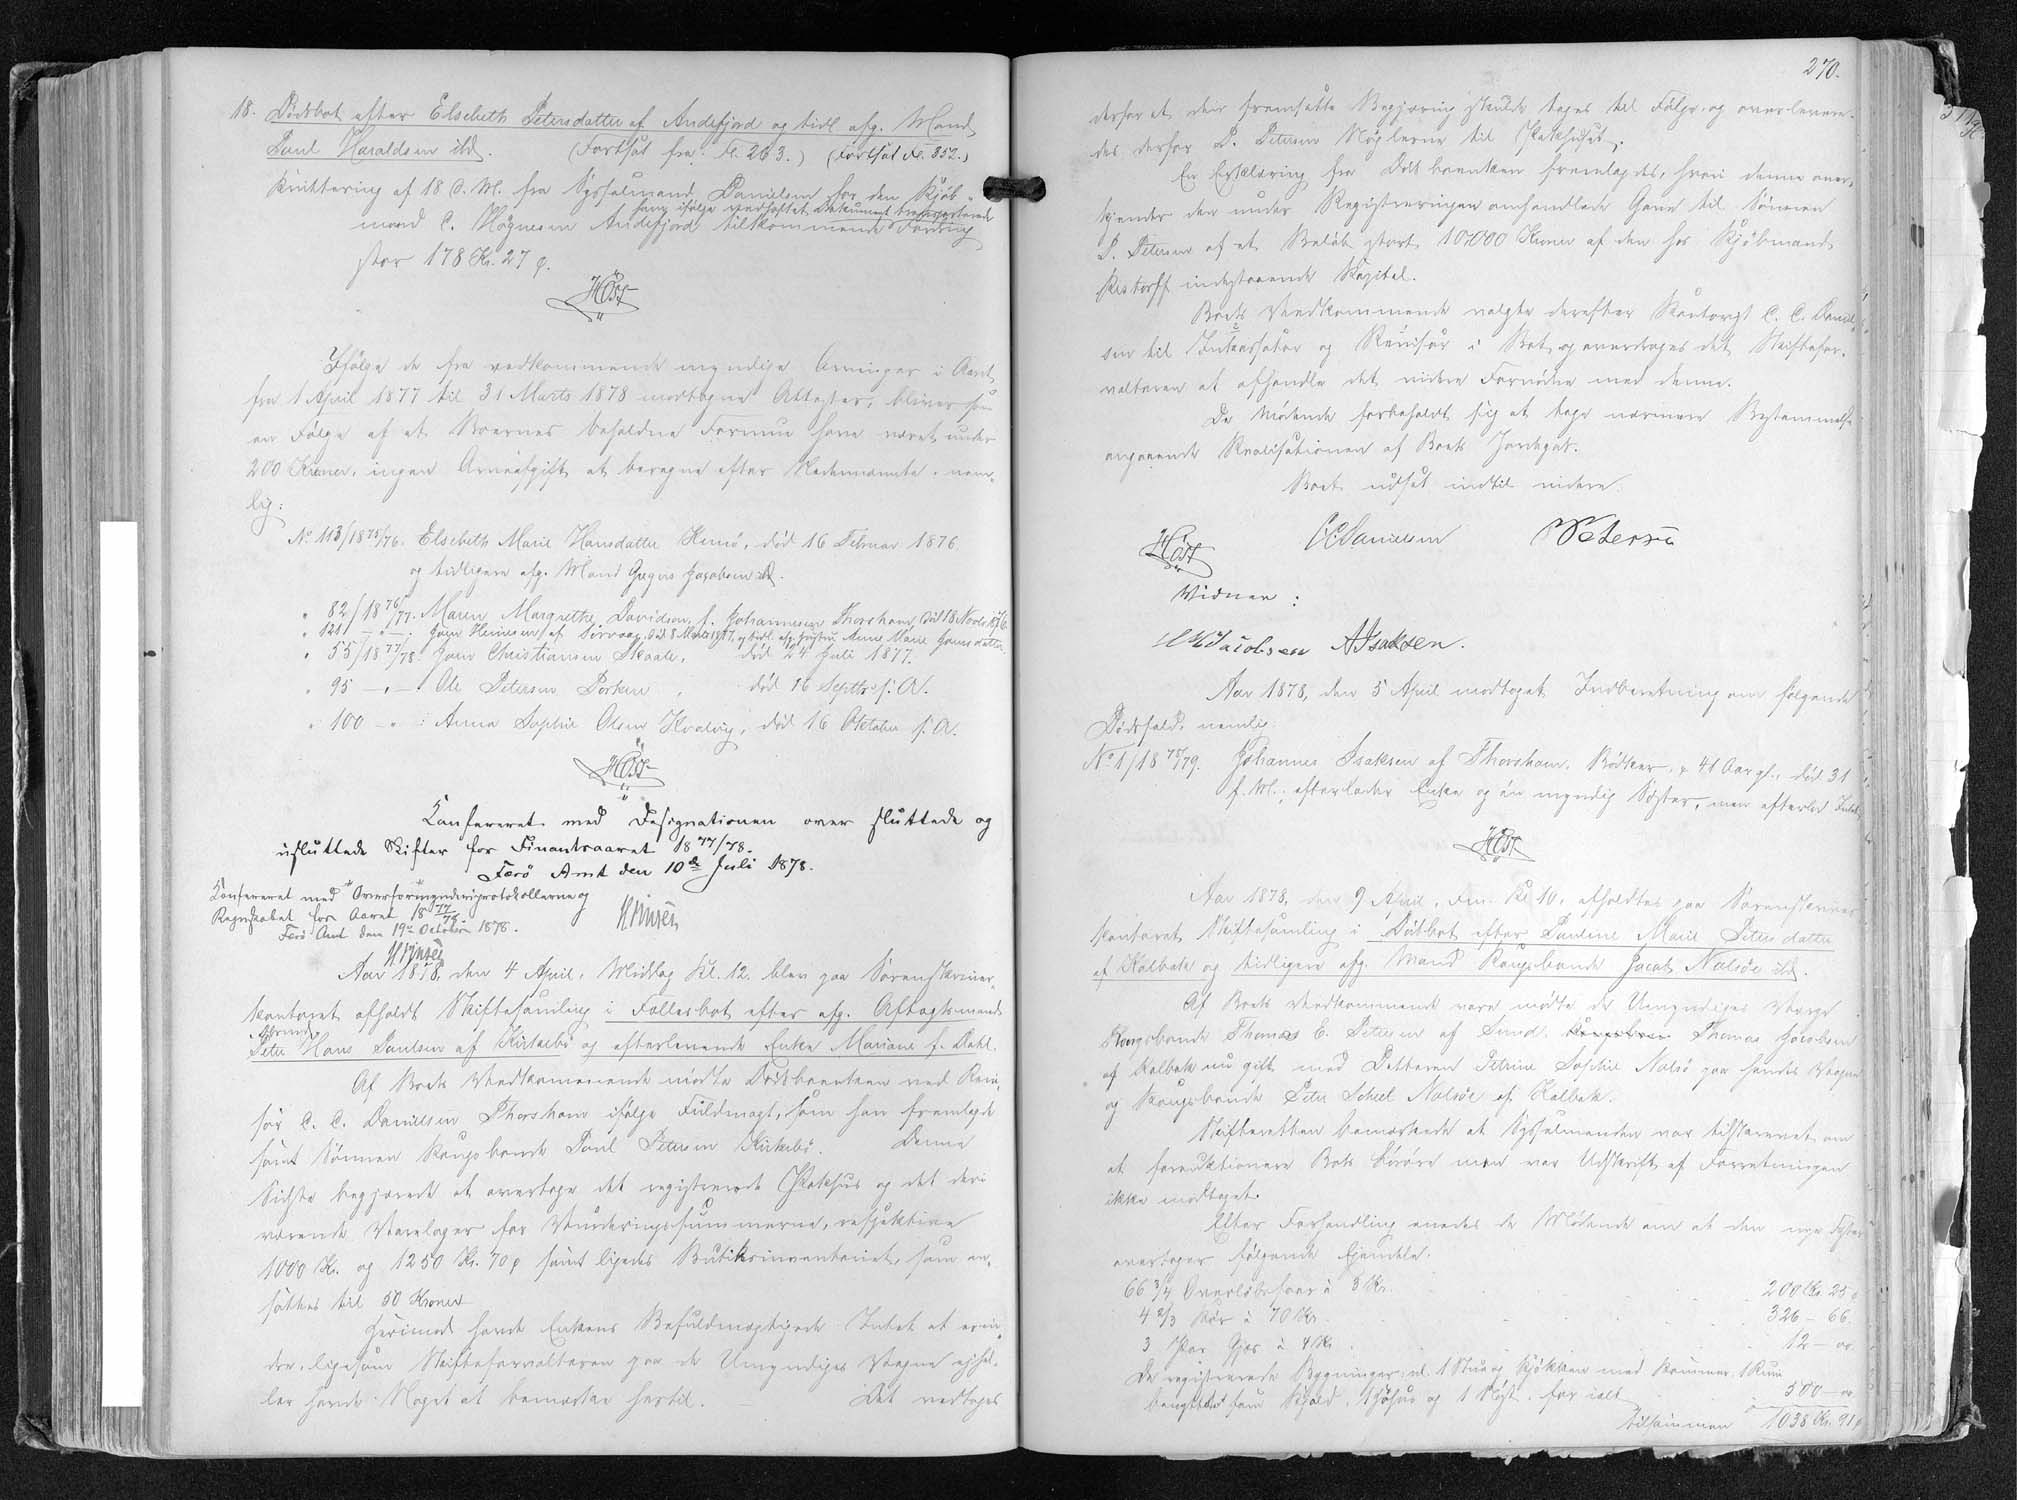 18. Dødsbot efter Elsebeth Petersdatter af Andefjord og tidl. afg. Mand
Poul Haraldsen ibd. (Fortsat fra Fl. 263.) (Fortsat Fl. 352.)
Kvittering af 18 d. M. fra Sysselmand Danielsen for den Kjøb-
mand C. Høgnesen Andefjord tilkommende Fordring
ham ifølge vedhæftet Dokument transporterede
stor 178 Kr. 27 ø.
Höst
Ifølge de fra vedkommende myndige Arvinger i Aaret
fra 1 April 1877 til 31 Marts 1878 modtagne Attester, bliver som
en Følge af at Boernes beholdne Formue have været under
200 Kroner, ingen Arveafgift at beregne efter Nedennævnte, nem-
lig:
No 113/1875/76. Elsebeth Marie Hansdatter Kunø, död 16 Februar 1876
og tidligere afg. Mand Gregers Jacobsen ibd.
" 82/1876/77. Maren Margrethe Davidsen, f. Johannesen Thorshavn, död 18 Novbr 1876.
" 121 — " —: Joen Heinesen af Sørvaag, død 8 Marts 1877, og tidl. afg. Hustru Anne Marie Joensdatter.
" 55/1877/78. Joen Christiansen Skaale, död 24 Juli 1877.
" 95 — " —: Ole Petersen Porkere, död 16 Septbr s. A.
" 100 — " —: Anna Sophie Olsen Hvalvig, död 16 Oktober s. A.
Höst
Konfereret med Designationen over sluttede og
usluttede Skifter for Finantsaaret 1877/78.
Færö Amt den 10de Juli 1878.
HFinsen
Konfereret med Overformynderiprotokollerne og
Regnskabet for Aaret 1877/78.
Færö Amt den 19de October 1878.
HFinsen
Aar 1878, den 4 April, Middag Kl. 12. blev paa Sorenskriver-
kontoret afholdt Skiftesamling i Fællesbot efter afg. Aftagtsmand
Peter Hans Poulsen af Kirkebö og efterlevende Enke Mariane f. Dahl.
Af Boets Vedkommende mödte Dödsboenken ved Revi-
sör C. C. Danielsen Thorshavn ifölge Fuldmagt, som han fremlagde
samt Sönnen Kongsbonde Poul Petersen Kirkebö. Denne
Sidste begjærede at overtage det registrerede Pakhus og det deri
værende Varelager for Vurderingssummerne, respektive
1000 Kr. og 1250 Kr. 70 ø samt ligedes Butiksinventariet, som an-
sattes til 50 Kroner
Herimod havde Enkens Befuldmægtigede Intet at erin-
dre, ligesom Skifteforvalteren paa de Umyndiges Vegne ejhel-
ler havde Noget at bemærke hertil. — Det vedtoges
270.
derfor at den fremsatte Begjæring skulde tages til Fölge, og overlevere-
des derfor P. Petersen Nöglerne til Pakhuset.
En Erklæring fra Dödsboenken fremlagdes, hvori denne aner-
kjender den under Registreringen omhandlede Gave til Sönnen
P. Petersen af et Belöb stort 10,000 Kroner af den hos Kjöbmand
Restorff indestaaende Kapital.
Boets Vedkommende valgte derefter Kontorgt C. C. Daniel-
sen til Inkassator og Revisör i Bot, og overdroges det Skiftefor-
valteren at afhandle det videre Fornödne med denne.
De Mödende forbeholdt sig at tage nærmere Bestemmelse
angaaende Realisationen af Boets Jordegods.
Boet udsat indtil videre.
Höst CCDanielsen PPetersen
Vidner:
Jacobsen AIsaksen.
Aar 1878, den 5 April modtaget Indberetning om fölgende
Dödsfald, nemlig:
No 1/1878/79. Johannes Isaksen af Thorshavn, Bödker, 41 Aar gl., död 31
f. M.; efterlader Enke og én myndig Söster, men efterlod Intet.
Höst
Aar 1878, den 9 April, Fm. Kl. 10, afholdtes paa Sorenskriver-
kontoret Skiftesamling i Dödsbot efter Pauline Marie Petersdatter
af Kalbak og tidligere afg. Mand Kongsbonde Jacob Nolsöe ibd.
Af Boets Vedkommende vare mödte de Umyndiges Værge
Kongsbonde Thomas E. Petersen af Sund. Thomas Jacobsen
af Kalbak nu gift med Datteren Petrine Sophie Nolsö paa hendes Vegne
og Kongsbonde Peter Scheel Nolsöe af Kalbak.
Skifteretten bemærkede at Sysselmanden var tilskrevet om
at foreauktionere Bots Lösöre men var Udskrift af Forretningen
ikke modtaget.
Efter Forhandling enedes de Mödende om at den nye Fæster
overtager fölgende Ejendele.
66 3/4 Overlöbsfaar à 3 Kr. 200 Kr. 25 ø
4 2/3 Kör à 70 Kr. 326 — 66.
3 Par Gjæs à 4 Kr. 12 — 00
De registrerede Bygninger, nl. 1 Stue og Kjökken med Kammer, 1 Rum
benyttet som Kjald, 1 Kjöhus og 1 Nöjst. for ialt 500 — 00
tilsammen 1038 Kr. 91 ø